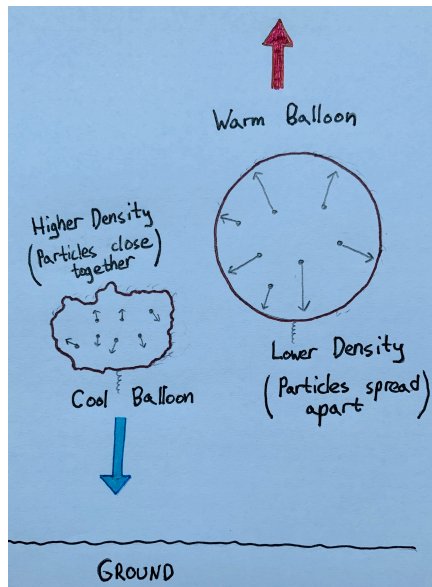 Warm Balloon
Higher Density
(Particles close
together)
Lower Density
(Particles spread
apart)
Cool Balloon
GROUND